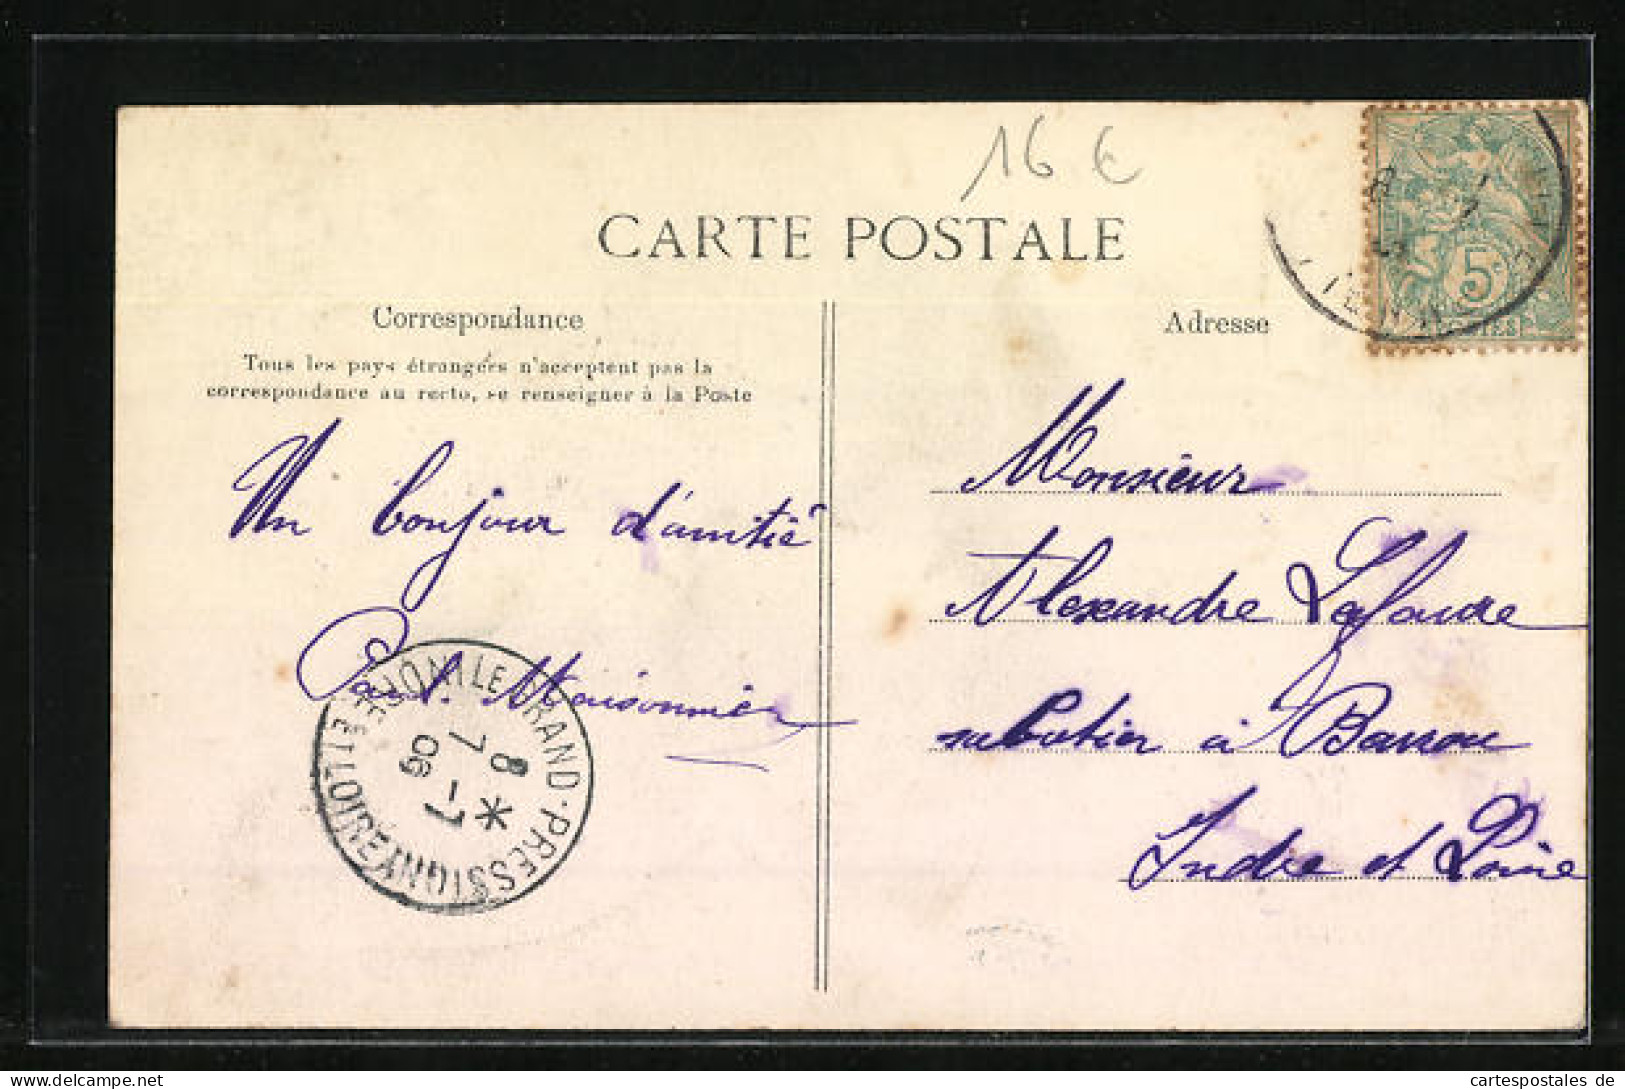 16 €
CARTE POSTALE
Correspondance
Tous les pays étrangers n'acceptent pas la
correspondance au recto, se renseigner à la Poste
Un bonjour d'amitié
Maisonnier
GRAND-PRESSIGNY
INDRE ET LOIRE
7 8 *
8 -7
06
Adresse
5c
POSTES
Monsieur
Alexandre
sabotier à Barrou
Indre et Loire
cartespostales de